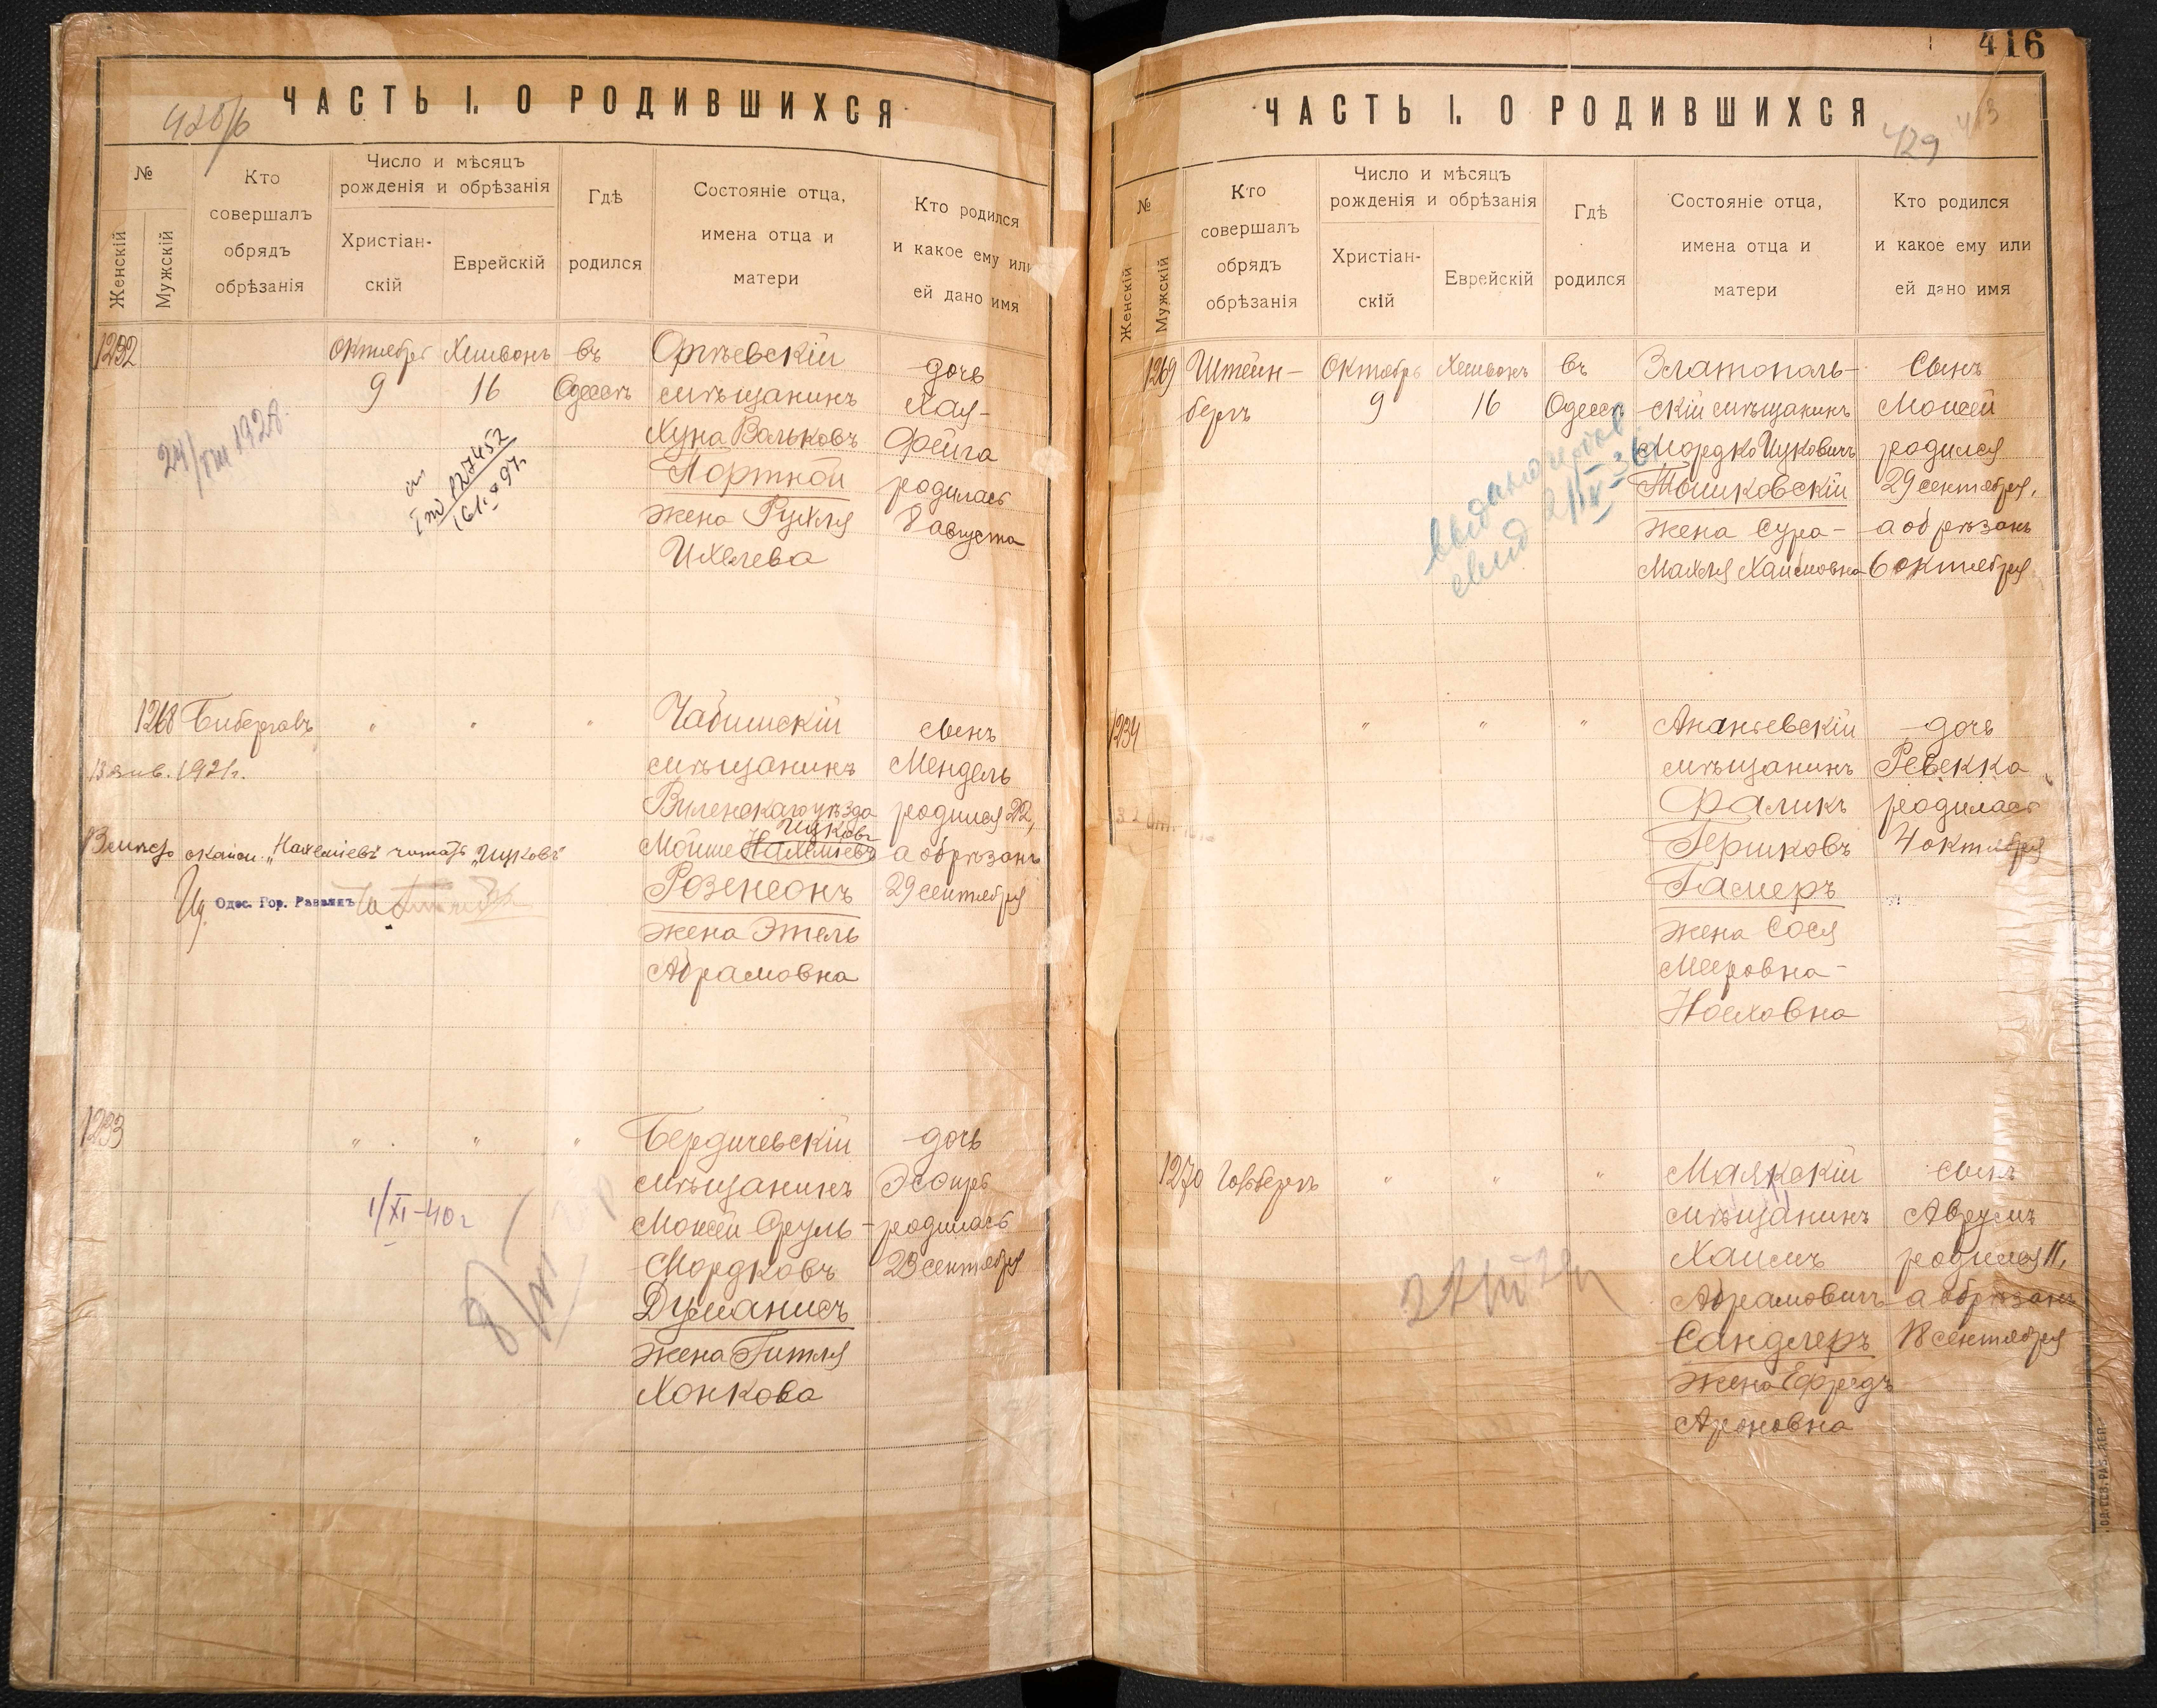 ЧАСТЬ I. О РОДИВШИХСЯ
№
Женскій
Мужскій
Кто
совершалъ
обрядъ
обрѣзанія
Число и мѣсяцъ
рожденія и обрѣзанія
Христіан-
скій
Еврейскій
Гдѣ
родился
Состояніе отца,
имена отца и
матери
Кто родился
и какое ему или
ей дано имя
1232
Октябрь
9
Хешвонъ
16
въ
Одессѣ
Оргѣевскій
мѣщанинъ
Хуна Вольковъ
Портной
жена Рухля
Ихелева
дочь
Хая-
Фейга
родилась
8 августа
1928
127452
1268
Биберговъ
"
"
"
Чабишскій
мѣщанинъ
Виленскаго уѣзда
Ицковъ
Мойше Нахемiевъ
Розенсонъ
жена Этель
Абрамовна
сынъ
Мендель
родился 22,
а обрѣзанъ
29 сентября
13 янв. 1921г.
"Нахемiевъ" читать "Ицковъ"
Одес. Гор. Раввинъ
1233
"
"
"
Бердичевскій
мѣщанинъ
Мойсей Сруль-
Мордковъ
Думанисъ
жена Гитля
Хонкова
дочь
Эсфирь
родилась
23 сентября
1/XI-40г
416
ЧАСТЬ I. О РОДИВШИХСЯ
429
№
Женскій
Мужскій
Кто
совершалъ
обрядъ
обрѣзанія
Число и мѣсяцъ
рожденія и обрѣзанія
Христіан-
скій
Еврейскій
Гдѣ
родился
Состояніе отца,
имена отца и
матери
Кто родился
и какое ему или
ей дано имя
1269
Штейн-
бергъ
Октябрь
9
Хешвонъ
16
въ
Одессѣ
Златополь-
скій мѣщанинъ
Мордко Ицковичъ
Тошковскій
жена Сура-
Махля Хаимовна
Сынъ
Моисей
родился
29 сентября,
а обрѣзанъ
6 октября
1234
"
"
"
Ананьевскій
мѣщанинъ
Фаликъ
Гершковъ
Гасмеръ
жена Сося
Мееровна-
Носховна
дочь
Ревекка
родилась
4 октября
1270
Гольбергъ
"
"
"
Маякскій
мѣщанинъ
Хаимъ
Абрамовичъ
Сандлеръ
жена Ефредъ
Ароновна
сынъ
Аврумъ
родился 11,
а обрѣзанъ
18 сентября